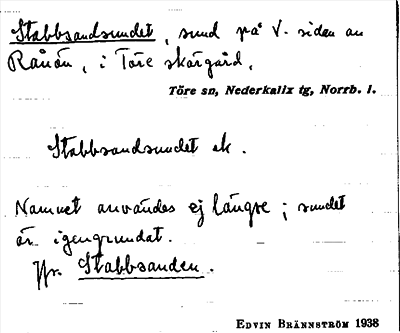 Stabbsandsundet, sund på V. sidan av
Rånön, i Töre skärgård.
Töre sn, Nederkalix tg, Norrb. l.
Stabbsandsundet ək.
Namnet användes ej längre; sundet
är igengrundat.
Jfr. Stabbsanden.
EDVIN BRÄNNSTRÖM 1938